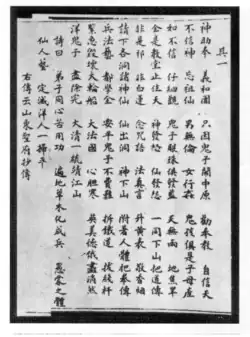 其一
神助拳 義和團 只因鬼子鬧中原 勸奉教 自信天
不信神 忘祖仙 男無倫 女行奸 鬼孩俱是子母產
如不信 仔細觀 鬼子眼珠俱發藍 天無雨 地焦旱
全是教堂止住天 神發怒 仙發怨 一同下山把道傳
非是邪 非白蓮 念咒語 法真言 升黃表 敬香煙
請下各洞諸神仙 仙出洞 神下山 附著人體把拳傳
兵法藝 都學全 要平鬼子不費難 拆鐵道 拔線杆
緊急毀壞火輪船 大法國 心膽寒 英美德俄盡消然
洋鬼子 盡除完 大清一統靖江山
詩曰 弟子同心苦用功 遍地草木化成兵 愚蒙之體
仙人藝 定滅洋人一掃平
右傳云山東聖府抄傳